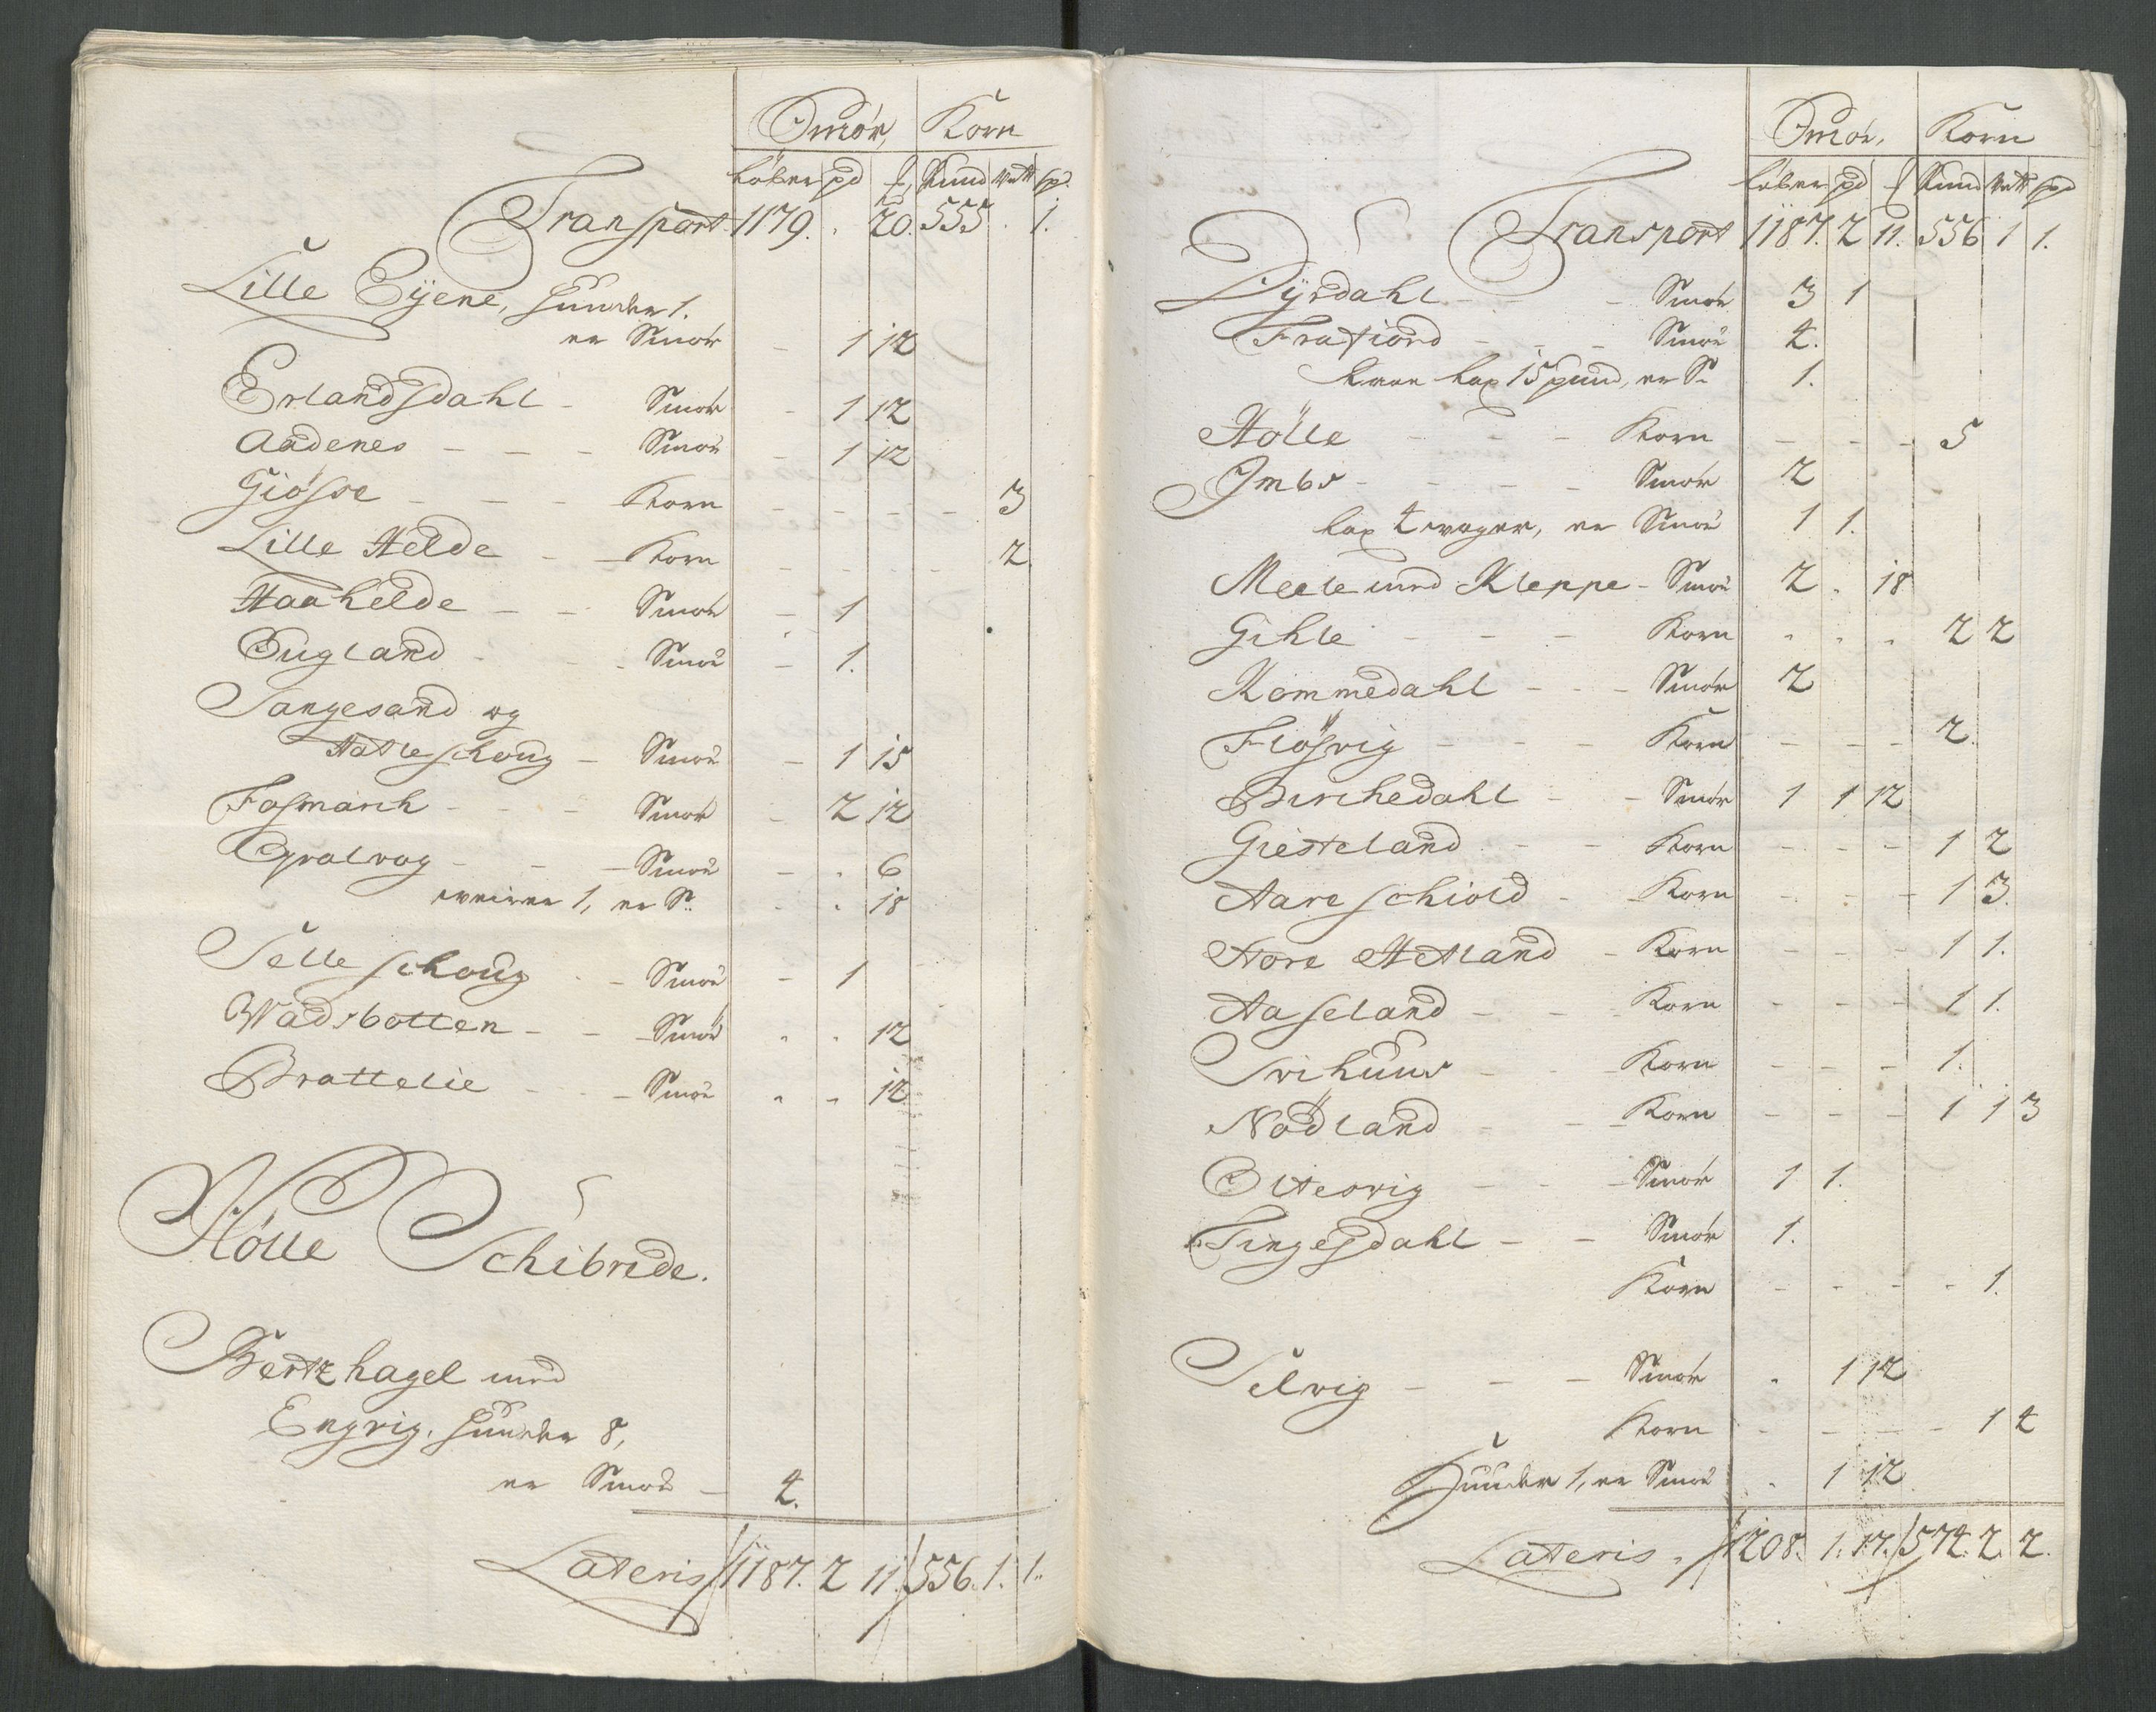 Smör, Korn
Løber pd ℔ Pund Vett sp.
Transport 1179. . 20. 555 . 1.
Lille Eÿene, huuder 1.
er Smör - 1 12
Erlandsdahl - Smör - 1 12
Aadenes - - - Smör - 1 12
Giösse - - - Korn - - - - 3
Lille Helde - - Korn - - - - 2.
Haahelde - - Smör - 1
Eugland - - Smör - 1.
Sangesand og
Hatleschoug - Smör - 1 15
Fosmarch - - - Smör - 2 12
- - - Smör - . 6
1, er S. . . 18
Selleschoug - - Smör - 1
Wadsbotten - - - Smör . . 12
Brattelie - - - Smör . . 12
Hölle Schibrede.
Bertzhagel med
Engvig, huuder 8,
er Smör - 4.
Lateris 1187. 2 11. 556. 1. 1.
Smör, Korn
Løber pd ℔ Pund Vett spd
Transport 1187. 2 11. 556 1 1.
Dÿrdahl - - - Smör 3 1
Frafiord - - - Smör 4.
lax 15 pund, er S. 1.
Hölle - - - Korn - - - 5
Imbs - - - - Smör 2
lax 4 woger, er Smör 1 1.
Meele med Kleppe - Smör 2 . 18
Gihle - - - Korn . . . 2 2
Kommedahl - - - Smör 2
Flösvig - - - Korn - - - 2.
Birchedahl - - Smör 1 1 12
Giesteland - - Korn - - - 1 2
Aareschiold - - Korn - - - 1 3.
Nore Hetland - Korn - - - 1 1.
Aaseland - - Korn - - - 1 1.
Svihuus - - Korn - - - 1.
Nödland - - - Korn - - - 1 1 3
Oltesvig - - - Smör 1 1.
Tingesdahl - - Smör 1.
Korn - - - - 1.
Selvig - - - Smör . 1 12
Korn - - - - 1 4
Huuder 1, er Smör . 1 12
Lateris . 1208. 1. 17. 574. 2. 2.